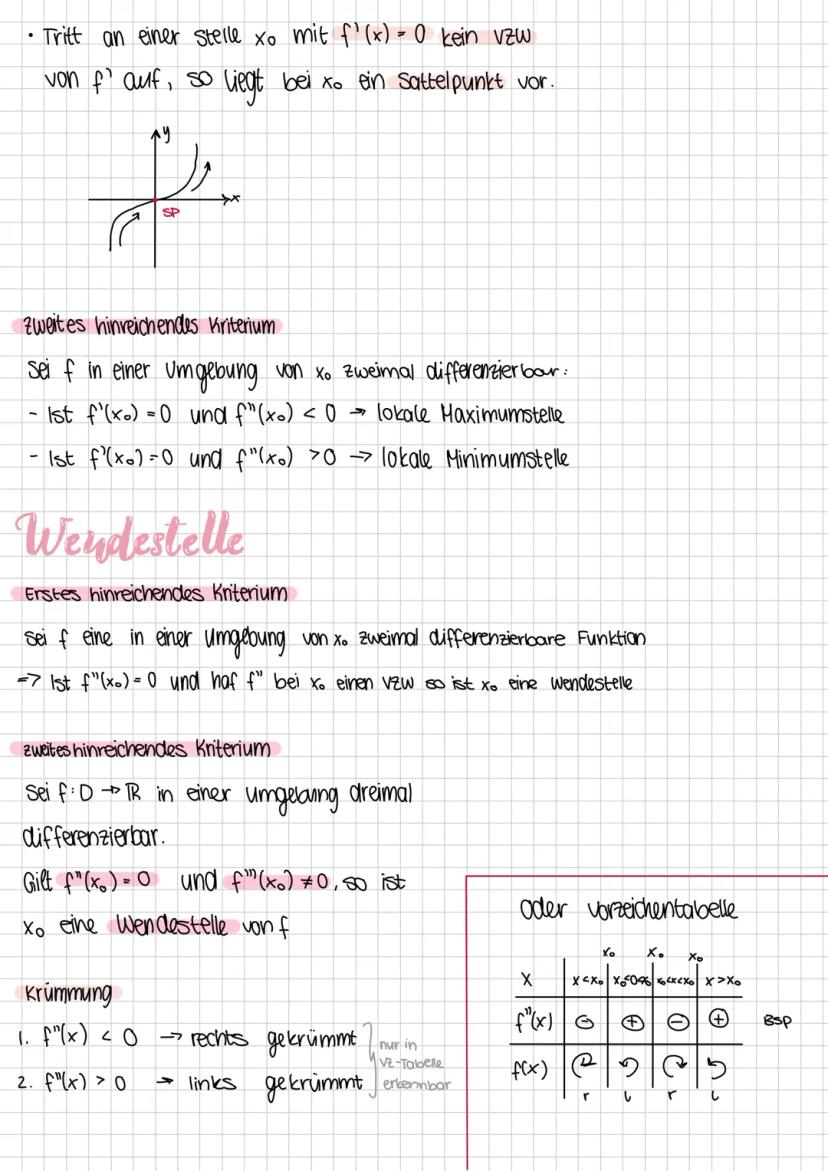 • Tritt an einer Stelle x₀ mit f'(x) = 0 kein VZW
von f' auf, so liegt bei x₀ ein Sattelpunkt vor.
y
x
SP
zweites hinreichendes Kriterium
Sei f in einer Umgebung von x₀ zweimal differenzierbar:
- Ist f'(x₀) = 0 und f"(x₀) < 0 → lokale Maximumstelle
- Ist f'(x₀) = 0 und f"(x₀) > 0 → lokale Minimumstelle
Wendestelle
Erstes hinreichendes Kriterium
Sei f eine in einer Umgebung von x₀ zweimal differenzierbare Funktion
=> Ist f"(x₀) = 0 und haf f" bei x₀ einen VZW so ist x₀ eine Wendestelle
zweites hinreichendes Kriterium
Sei f: D → ℝ in einer Umgebung dreimal
differenzierbar.
Gilt f"(x₀) = 0 und f'''(x₀) ≠ 0, so ist
x₀ eine Wendestelle von f
Krümmung
1. f"(x) < 0 → rechts gekrümmt
2. f"(x) > 0 → links gekrümmt
nur in
VZ-Tabelle
erkennbar
oder Vorzeichentabelle
x₀ x₀ x₀
X x<x₀ x₀<x<x₀ x>x₀
f"(x) ⊖ ⊕ ⊖ ⊕ BSP
f(x)
r l r l